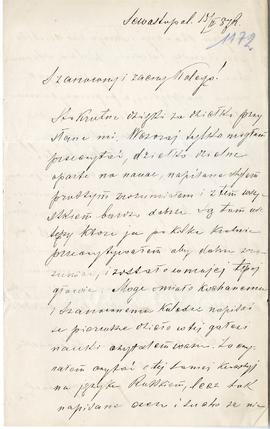 Sewastopol 15/II 87 R.
1172
Szanowny i zacny Kolego!
Stokrotne dzięki za dziełko przy
słane mi. Wczoraj tylko mogłem
przeczytać, dziełko dzielne
oparte na nauce, napisane stylem
prostszym zrozumiałem i z tem wszy
stkiem bardzo dobre. Są tam ustępy
które ja po kilka krotnie
przeczytywałem aby dobrze zro
zumieć, i zostało w mojej
głowie. Mogę śmiało kochanemu
i Szanownemu Koledze napisać
że pierwsze dzieło w tej gałęzi
nauki czytałem wasze.
czytać o tej samej kwestyi
na języku Ruskiem, lecz tak
napisane i że nie